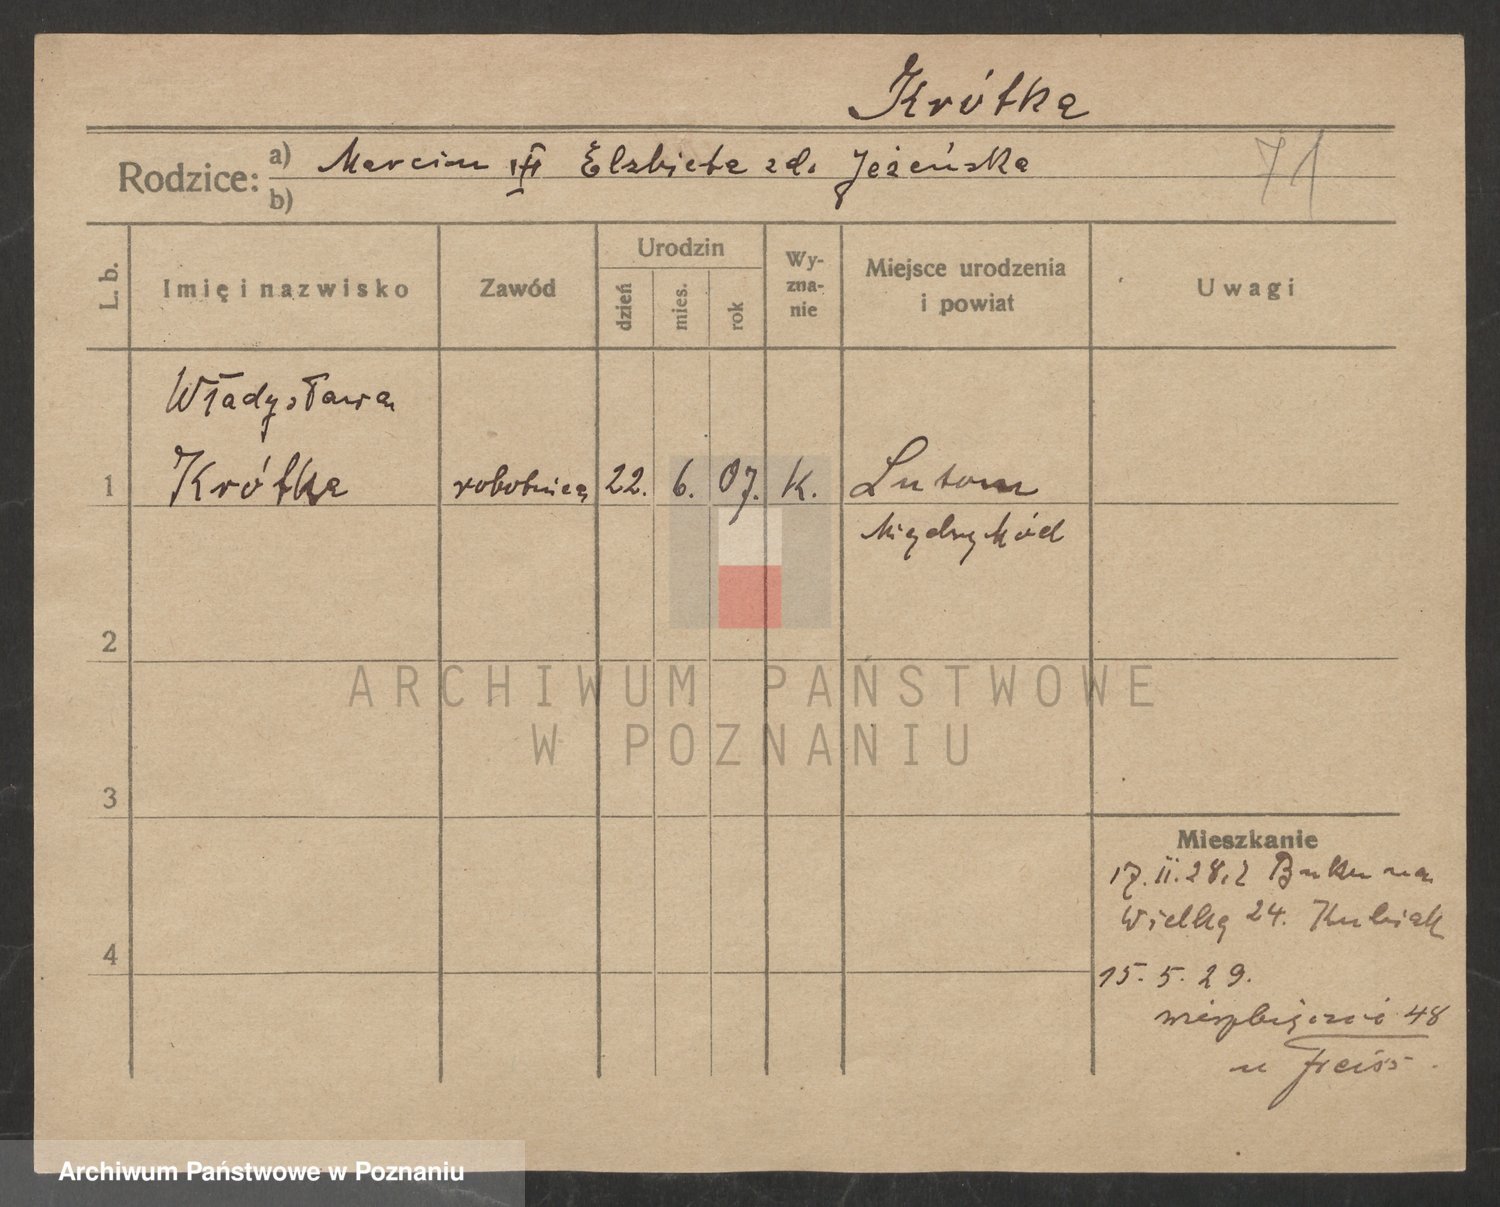 Krótka
Rodzice: a) Marcin Elzbieta zd. Jeżeńska
b)
71
L. b.
Imię i nazwisko
Zawód
Urodzin
dzień
mies.
rok
Wy-
zna-
nie
Miejsce urodzenia
i powiat
Uwagi
Władysława
1 Krótka robotnica 22. 6. 07. K. Lutom
Międzychód
2
3
4
Mieszkanie
17.II.28. z Buku na
Wielką 24. Kubiak
15.5.29.
48
u
ARCHIWUM PAŃSTWOWE
W POZNANIU
Archiwum Państwowe w Poznaniu